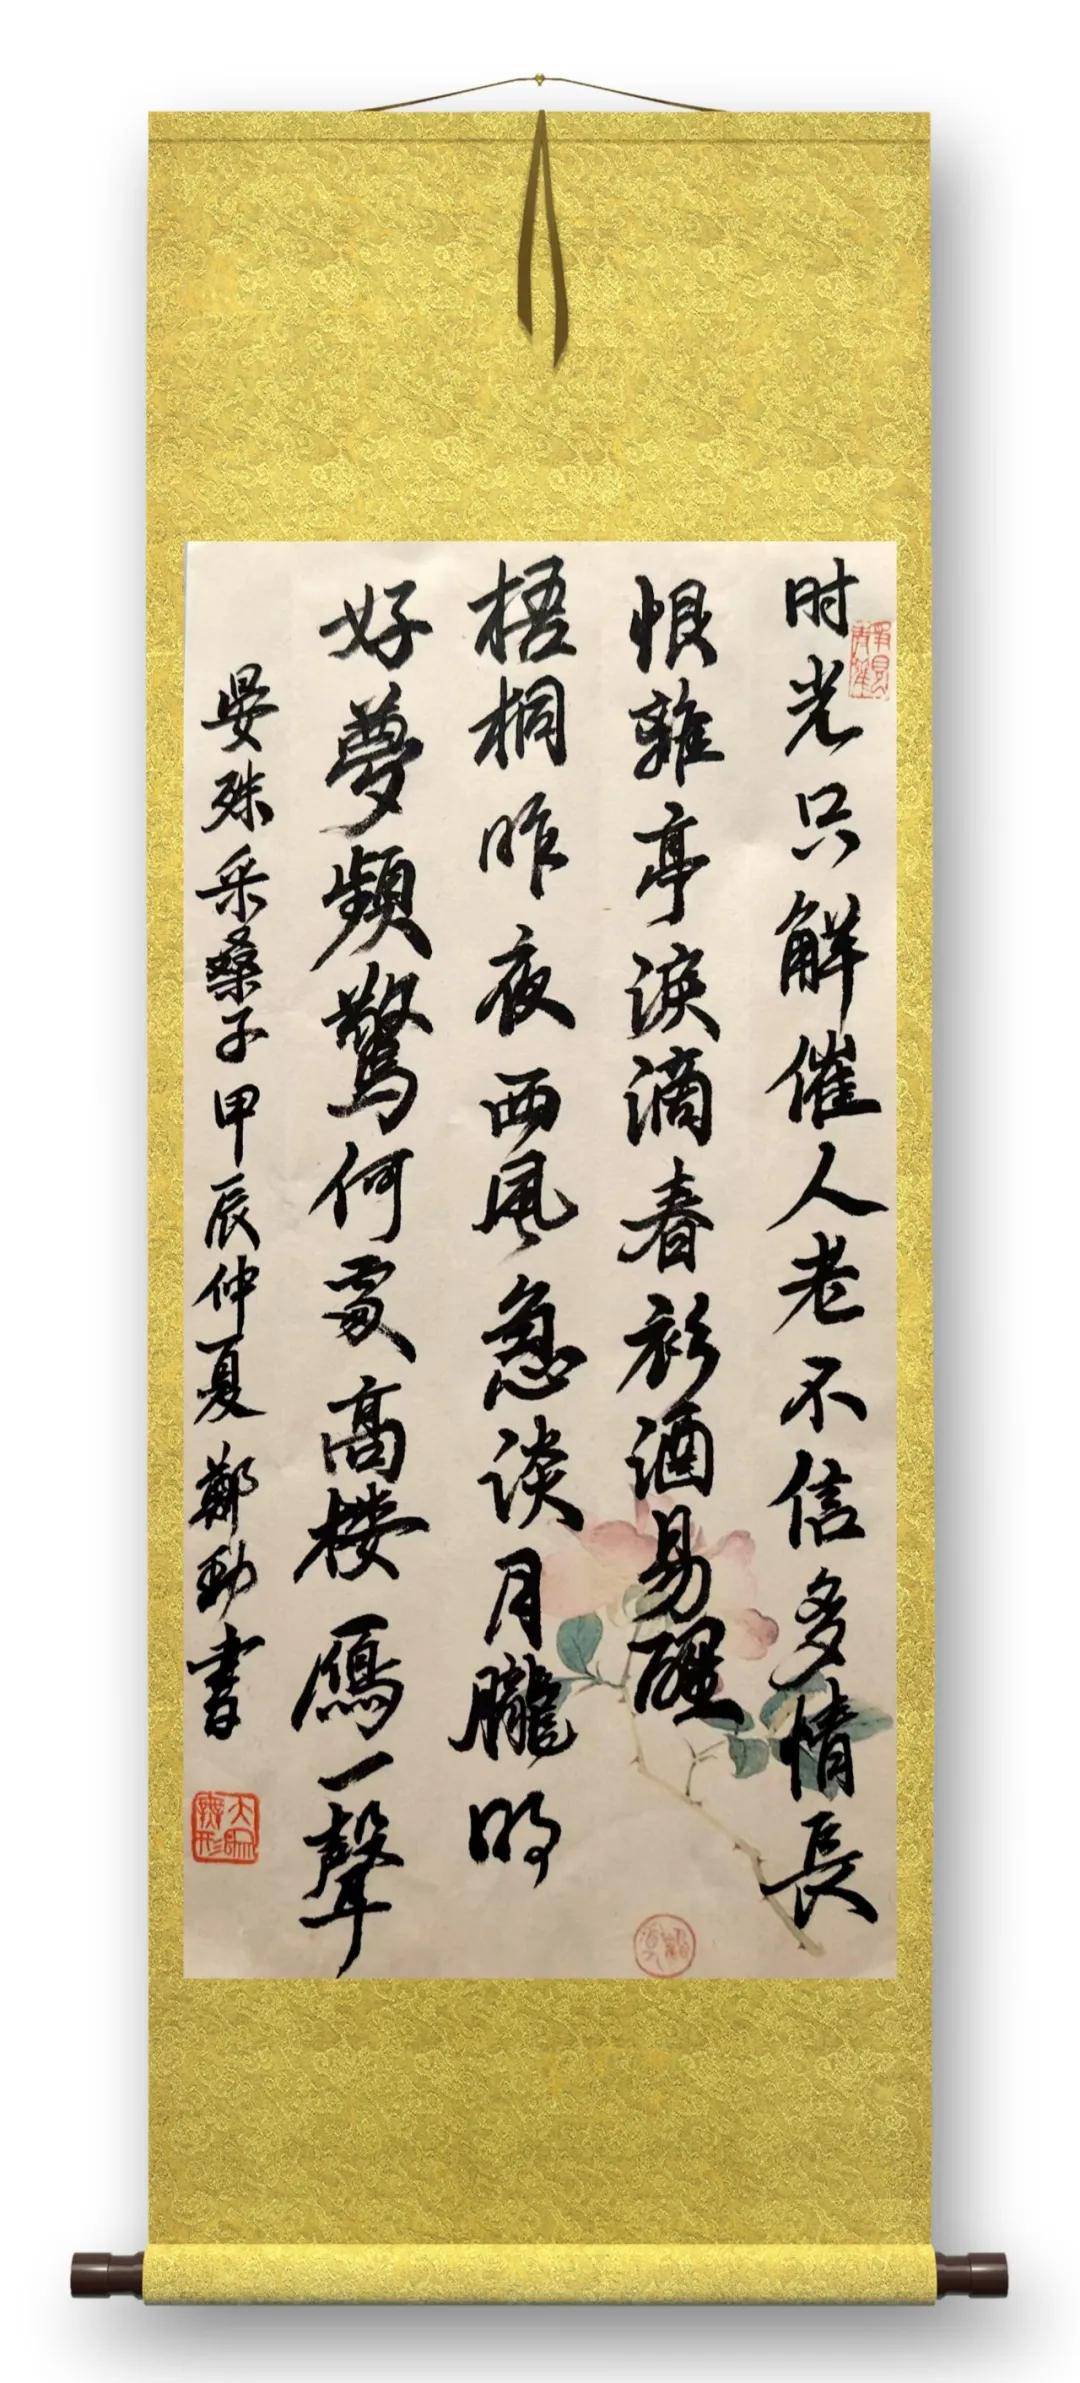 时光只解催人老不信多情長
恨離亭淚滴春衫酒易醒
梧桐昨夜西風急淡月朧明
好夢頻驚何處高楼雁一聲
晏殊采桑子甲辰仲夏鄭勁書